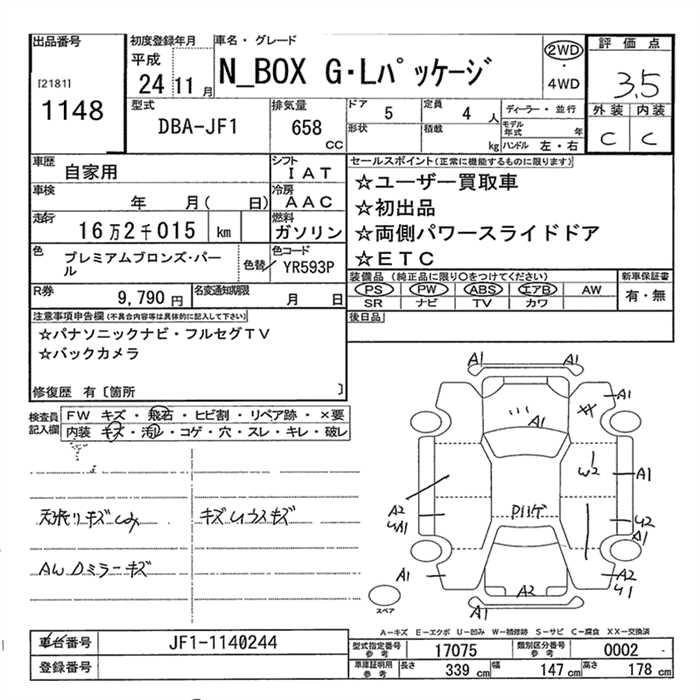 出品番号
[2181]
1148
初度登録年月
平成
24 11 月
車名・グレード
N_BOX G・Lパッケージ
2WD
・
4WD
評価点
3.5
型式
DBA-JF1
排気量
658
CC
ドア 5
形状
定員 4 人
積載 kg
ディーラー・並行
モデル年式 年
ハンドル 左・右
外装 内装
C C
車歴
自家用
シフト
IAT
車検
年 月( 日)
冷房
AAC
走行
16万2千015 km
燃料
ガソリン
色
プレミアムブロンズ・パール
色替
色コード
YR593P
R券
9,790 円
名変通知期限
月 日
セールスポイント(正常に機能するものに限ります)
☆ユーザー買取車
☆初出品
☆両側パワースライドドア
☆ETC
装備品 (純正品に限り○をつけてください)
PS PW ABS エアB AW
SR ナビ TV カワ
新車保証書
有・無
後日品
注意事項申告欄(不具合内容等は具体的に記入して下さい)
☆パナソニックナビ・フルセグTV
☆バックカメラ
修復歴 有〔箇所 〕
検査員記入欄
FW キズ・飛石・ヒビ割・リペア跡・×要
内装 キズ・汚レ・コゲ・穴・スレ・キレ・破レ
天張りキズ
キズ ウスキズ
AW Dミラーキズ
A1
A1
A1
XX
A1
W2
A1
A2
A1
U2
A1
A1
A2
A2
スペア
A－キズ E－エクボ U－凹み W－補修跡 S－サビ C－腐食 XX－交換済
車台番号
JF1-1140244
登録番号
型式指定番号
参考
17075
類別区分番号
参考
0002
車庫証明用
参考
長さ 339 cm 幅 147 cm 高さ 178 cm